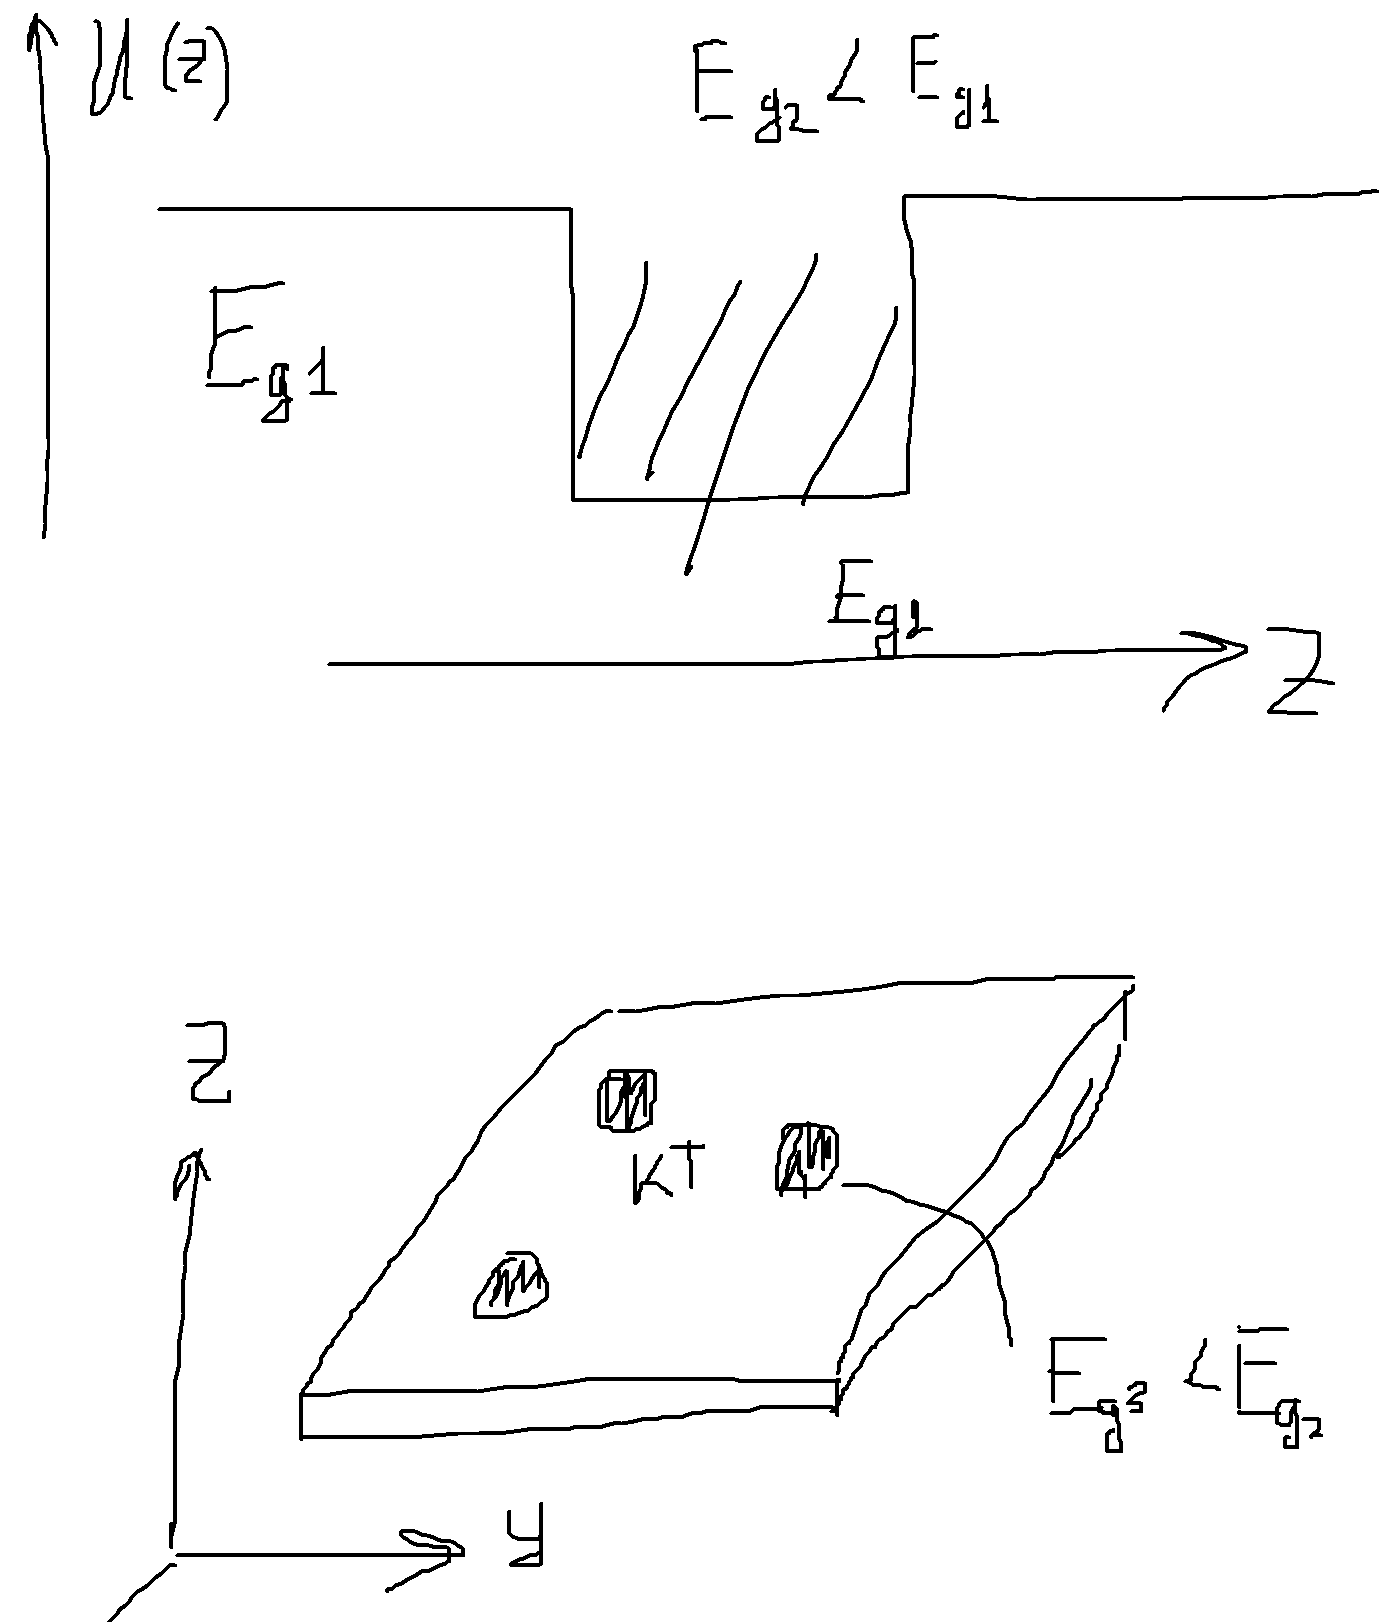 U(z)
E_g2 < E_g1
E_g1
E_g2
Z
Z
КТ
E_g3 < E_g2
y